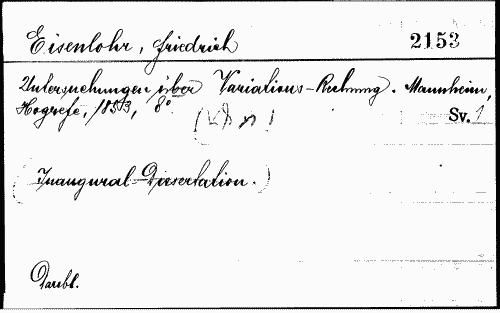 Eisenlohr, Friedrich 2153
Untersuchungen über Variations-Rechnung. Mannheim,
Hogrefe, 1853, 8° Sv. 1
(Inaugural-Dissertation.)
Darbl.